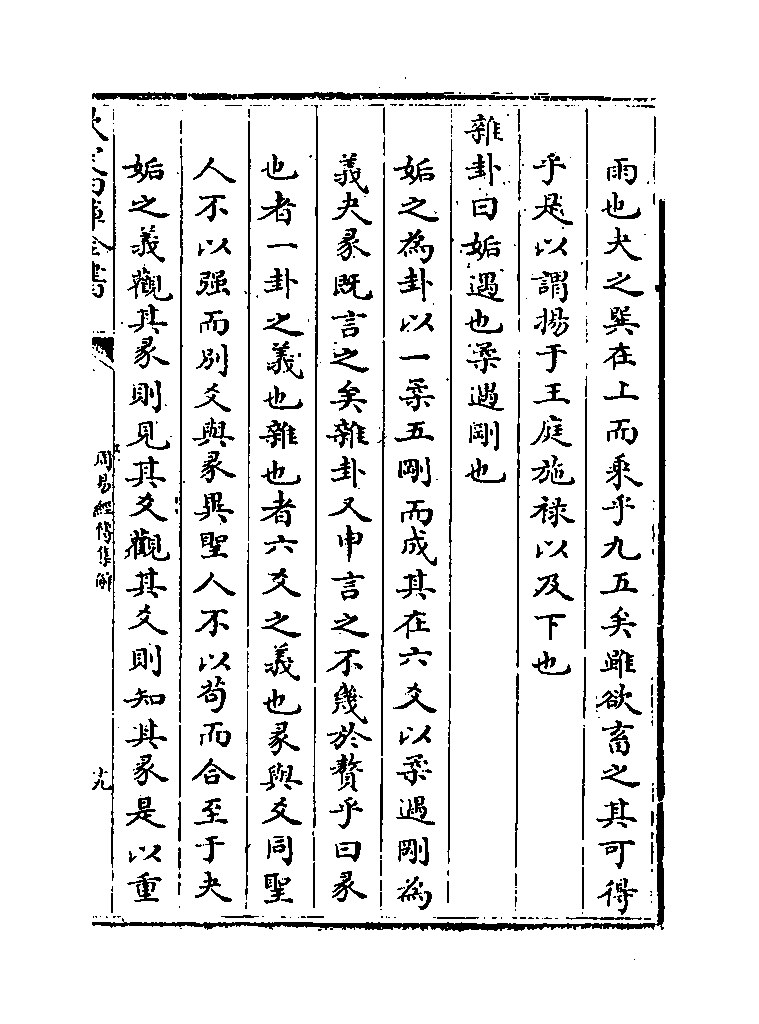 雨也夬之巽在上而乘乎九五矣雖欲畜之其可得
乎是以謂揚于王庭施禄以及下也
雜卦曰姤遇也柔遇剛也
姤之為卦以一柔五剛而成其在六爻以柔遇剛為
義夬彖既言之矣雜卦又申言之不幾於贅乎曰彖
也者一卦之義也雜也者六爻之義也彖與爻同聖
人不以强而别爻與彖異聖人不以苟而合至于夬
姤之義觀其彖則見其爻觀其爻則知其彖是以重
欽定四庫全書
周易經傳集解
十九